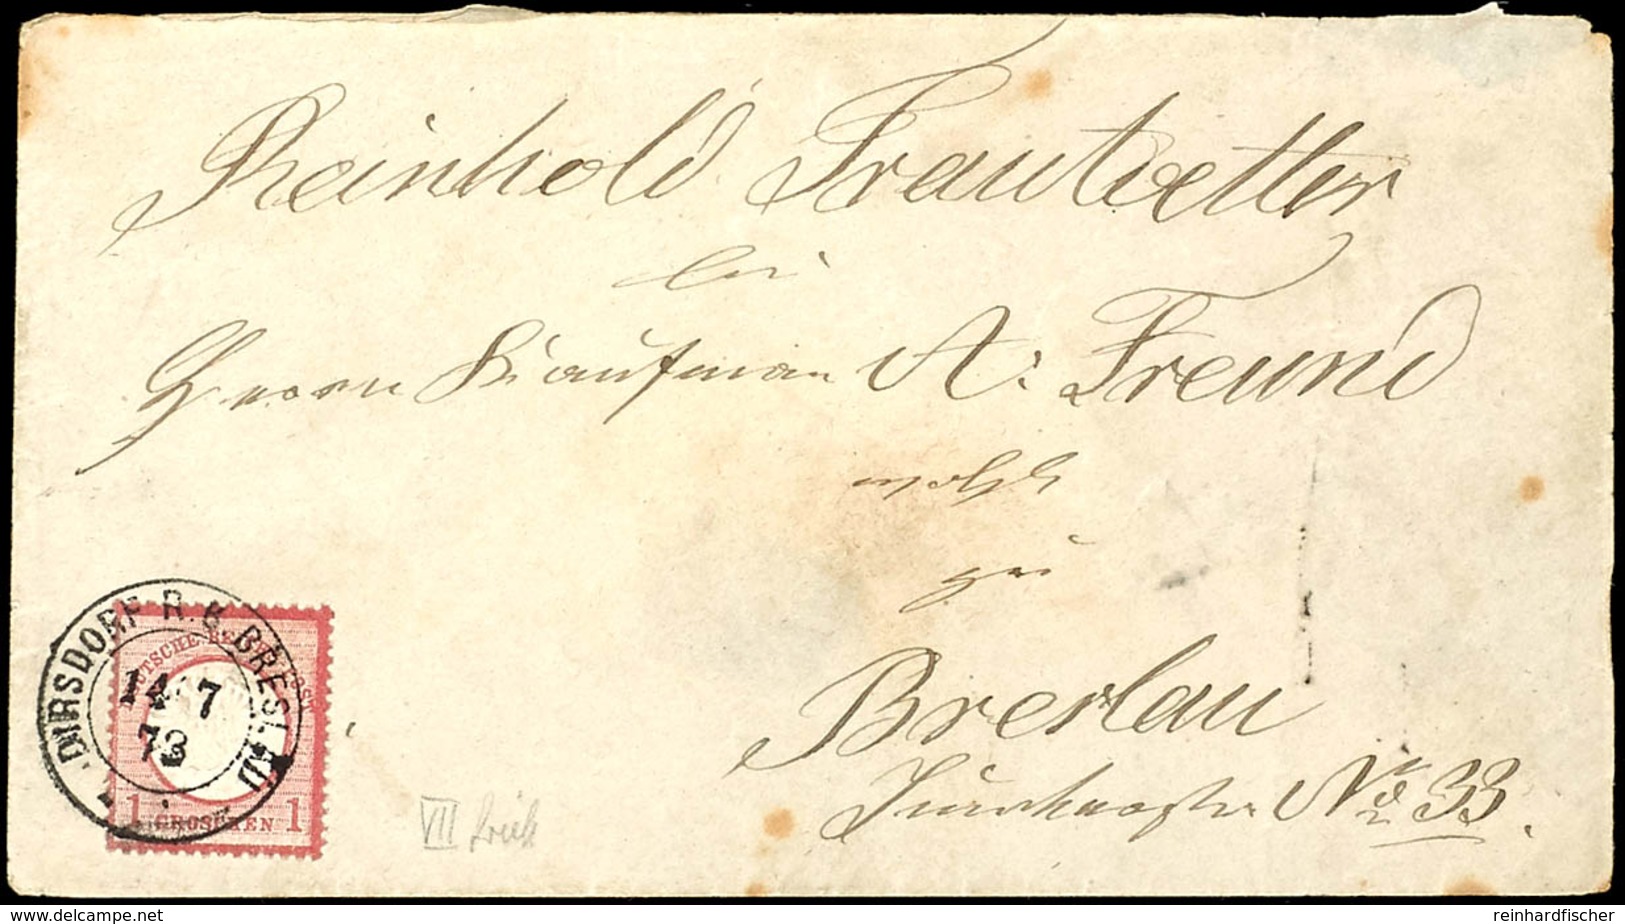 Reinhold Trautvetter
bei
Herrn Kaufman A. Freund
wohlh
zu
Breslau
No 33.
DIRSDORF R.B. BRESLAU
14 7
73
DEUTSCHE REICHS POST
1 GROSCHEN 1
VII
delcampe.net
reinhardfischer